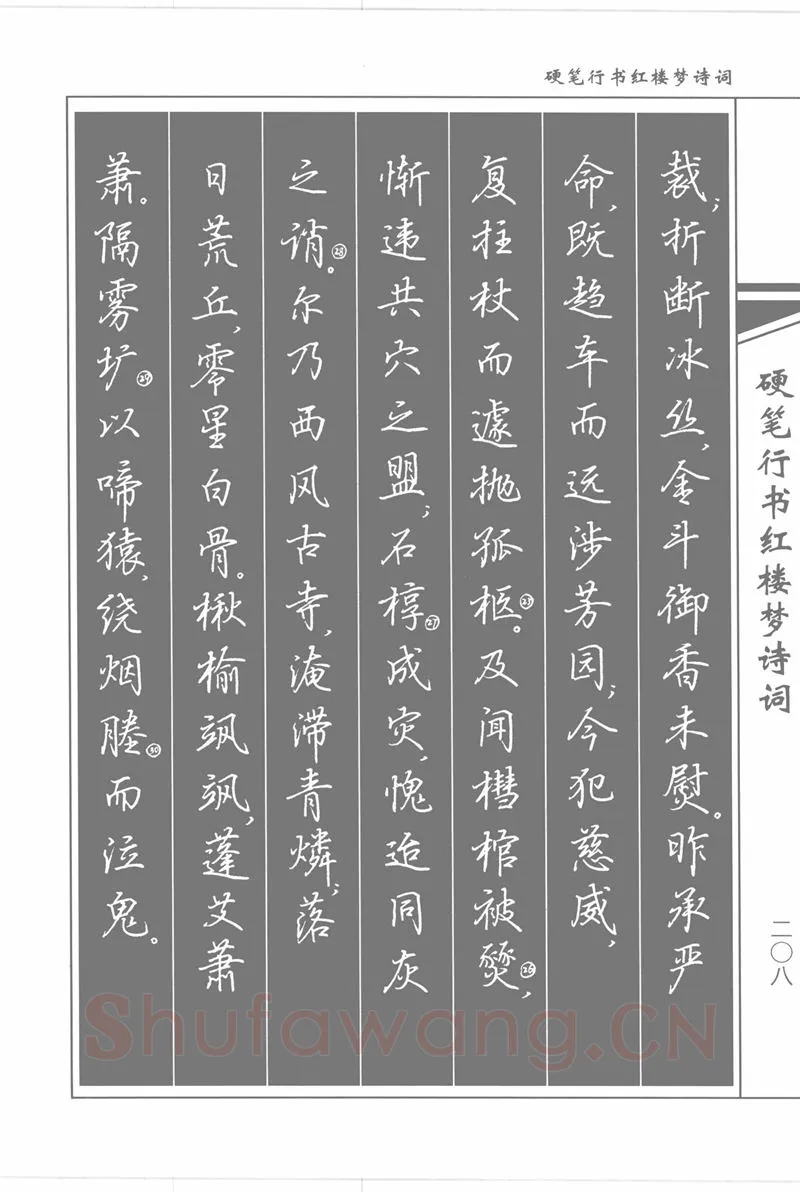 硬笔行书红楼梦诗词
裁;折断冰丝,金斗御香未熨。昨承严
命,既趋车而远涉芳园;今犯慈威,
复拄杖而遽抛孤柩㉕。及闻槥棺被燹㉖,
惭违共穴之盟;石椁㉗成灾,愧迨同灰
之诮㉘。尔乃西风古寺,淹滞青燐;落
日荒丘,零星白骨。楸榆飒飒,蓬艾萧
萧。隔雾圹㉙以啼猿,绕烟塍㉚而泣鬼。
硬笔行书红楼梦诗词
二〇八
Shufawang.CN